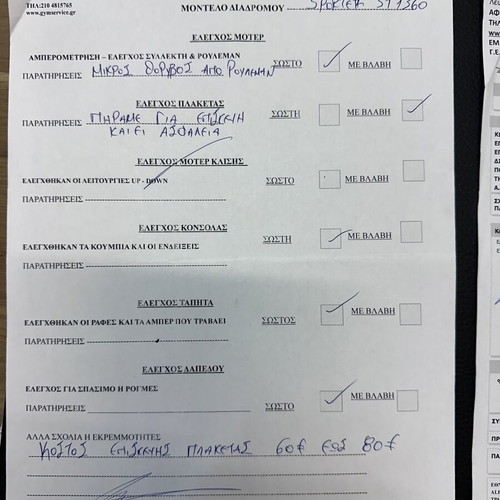 ΤΗΛ:210 4815765
www.gymservice.gr
ΜΟΝΤΕΛΟ ΔΙΑΔΡΟΜΟΥ SPORTER ST1360
ΕΛΕΓΧΟΣ ΜΟΤΕΡ
ΑΜΠΕΡΟΜΕΤΡΗΣΗ – ΕΛΕΓΧΟΣ ΣΥΛΛΕΚΤΗ & ΡΟΥΛΕΜΑΝ
ΠΑΡΑΤΗΡΗΣΕΙΣ ΜΙΚΡΟΣ ΘΟΡΥΒΟΣ ΑΠΟ ΡΟΥΛΕΜΑΝ ΣΩΣΤΟ ΜΕ ΒΛΑΒΗ
ΕΛΕΓΧΟΣ ΠΛΑΚΕΤΑΣ
ΠΑΡΑΤΗΡΗΣΕΙΣ ΠΗΡΑΜΕ ΓΙΑ ΕΠΙΣΚΕΥΗ ΣΩΣΤΗ ΜΕ ΒΛΑΒΗ
ΚΑΙΕΙ ΑΣΦΑΛΕΙΑ
ΕΛΕΓΧΟΣ ΜΟΤΕΡ ΚΛΙΣΗΣ
ΕΛΕΓΧΘΗΚΑΝ ΟΙ ΛΕΙΤΟΥΡΓΙΕΣ UP - DOWN ΣΩΣΤΟ ΜΕ ΒΛΑΒΗ
ΠΑΡΑΤΗΡΗΣΕΙΣ
ΕΛΕΓΧΟΣ ΚΟΝΣΟΛΑΣ
ΕΛΕΓΧΘΗΚΑΝ ΤΑ ΚΟΥΜΠΙΑ ΚΑΙ ΟΙ ΕΝΔΕΙΞΕΙΣ ΣΩΣΤΗ ΜΕ ΒΛΑΒΗ
ΠΑΡΑΤΗΡΗΣΕΙΣ
ΕΛΕΓΧΟΣ ΤΑΠΗΤΑ
ΕΛΕΓΧΘΗΚΑΝ ΟΙ ΡΑΦΕΣ ΚΑΙ ΤΑ ΑΜΠΕΡ ΠΟΥ ΤΡΑΒΑΕΙ ΣΩΣΤΟΣ ΜΕ ΒΛΑΒΗ
ΠΑΡΑΤΗΡΗΣΕΙΣ
ΕΛΕΓΧΟΣ ΔΑΠΕΔΟΥ
ΕΛΕΓΧΟΣ ΓΙΑ ΣΠΑΣΙΜΟ Η ΡΟΓΜΕΣ
ΠΑΡΑΤΗΡΗΣΕΙΣ ΣΩΣΤΟ ΜΕ ΒΛΑΒΗ
ΑΛΛΑ ΣΧΟΛΙΑ Η ΕΚΡΕΜΜΟΤΗΤΕΣ
ΚΟΣΤΟΣ ΕΠΙΣΚΕΥΗΣ ΠΛΑΚΕΤΑΣ 60€ ΕΩΣ 80€